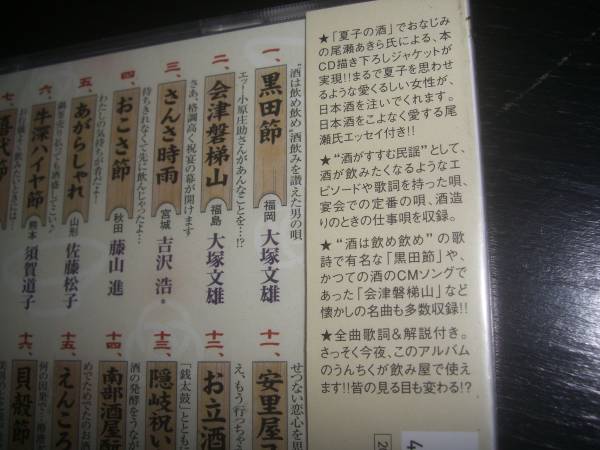 ★「夏子の酒」でおなじみ
の尾瀬あきら氏による、本
CD描き下ろしジャケットが
実現!!まるで夏子を思わせ
るような愛くるしい女性が、
日本酒を注いでくれます。
日本酒をこよなく愛する尾
瀬氏エッセイ付き!!
★“酒がすすむ民謡”として、
酒が飲みたくなるようなエ
ピソードや歌詞を持った唄、
宴会での定番の唄、酒造
りのときの仕事唄を収録。
★“酒は飲め飲め”の歌
詩で有名な「黒田節」や、
かつての酒のCMソングで
あった「会津磐梯山」など
懐かしの名曲も多数収録!!
★全曲歌詞&解説付き。
さっそく今夜、このアルバム
のうんちくが飲み屋で使え
ます!!皆の見る目も変わる!?
“酒は飲め飲め”酒飲みを讃えた男の唄
一、黒田節 福岡 大塚文雄
エッ!小原庄助さんがあんなことを…!?
二、会津磐梯山 福島 大塚文雄
さあ、格調高く祝宴の幕が開けます
三、さんさ時雨 宮城 吉沢 浩
待ちきれなくて先に飲んじゃったよ…
四、おこさ節 秋田 藤山 進
わたしの気持ちが肴だよ…
五、あがらしゃれ 山形 佐藤松子
六、牛深ハイヤ節 熊本 須賀道子
七、喜代節
せつない恋心を
十一、安里屋
え、もう「行っちゃ
十二、お立酒
「銭太鼓」ととも
十三、隠岐祝い
酒の発酵をうなが
十四、南部酒屋
めでためでたのお酒
十五、えんころ
何の因果で
十六、貝殻節